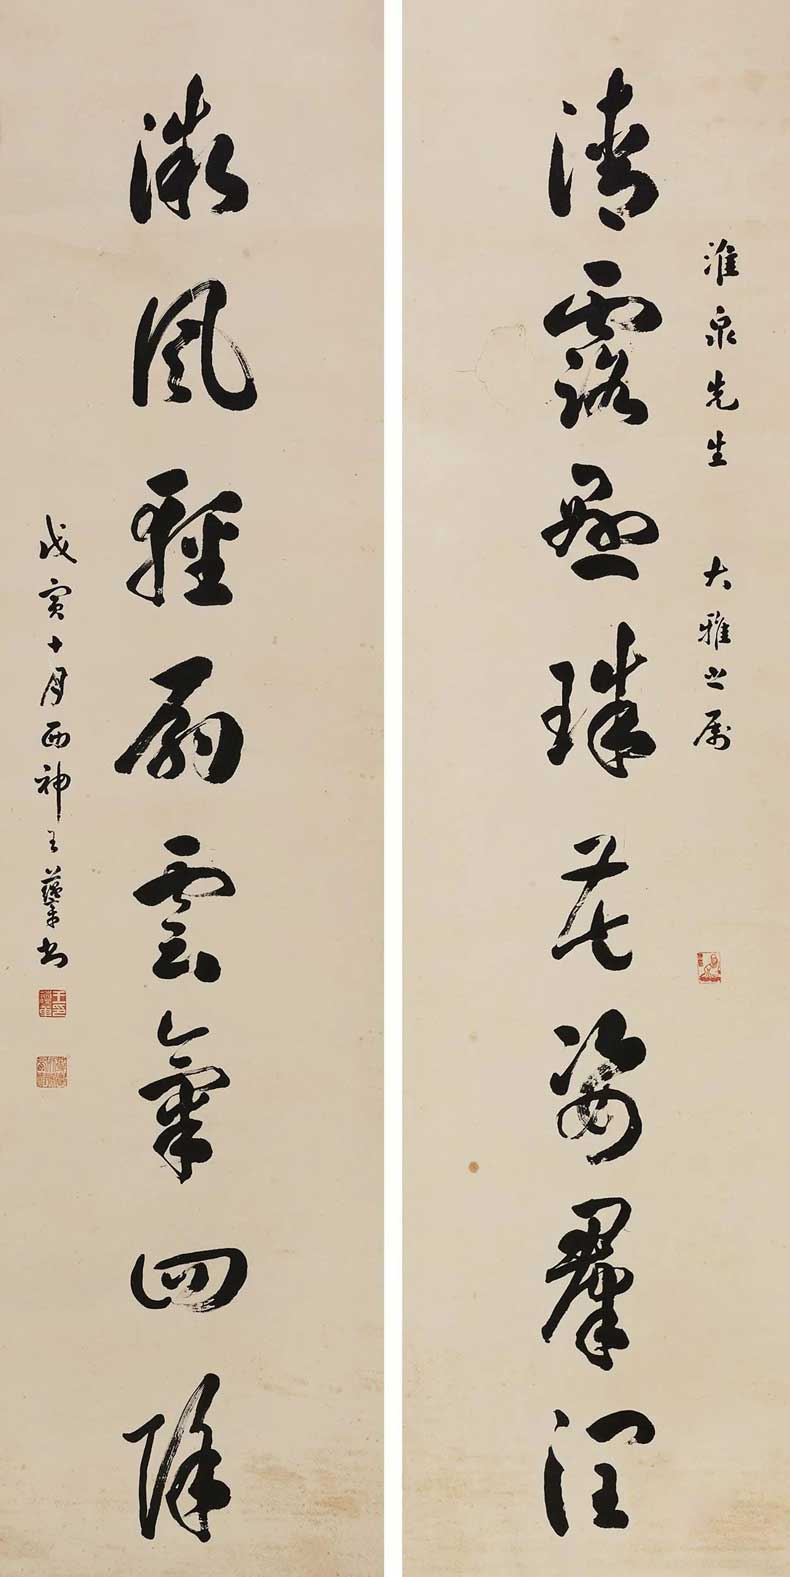 淮泉先生 大雅之屬
清露懸珠花姿羣潤
微風輕扇雲氣四除
戊寅十月西神王蘊章書